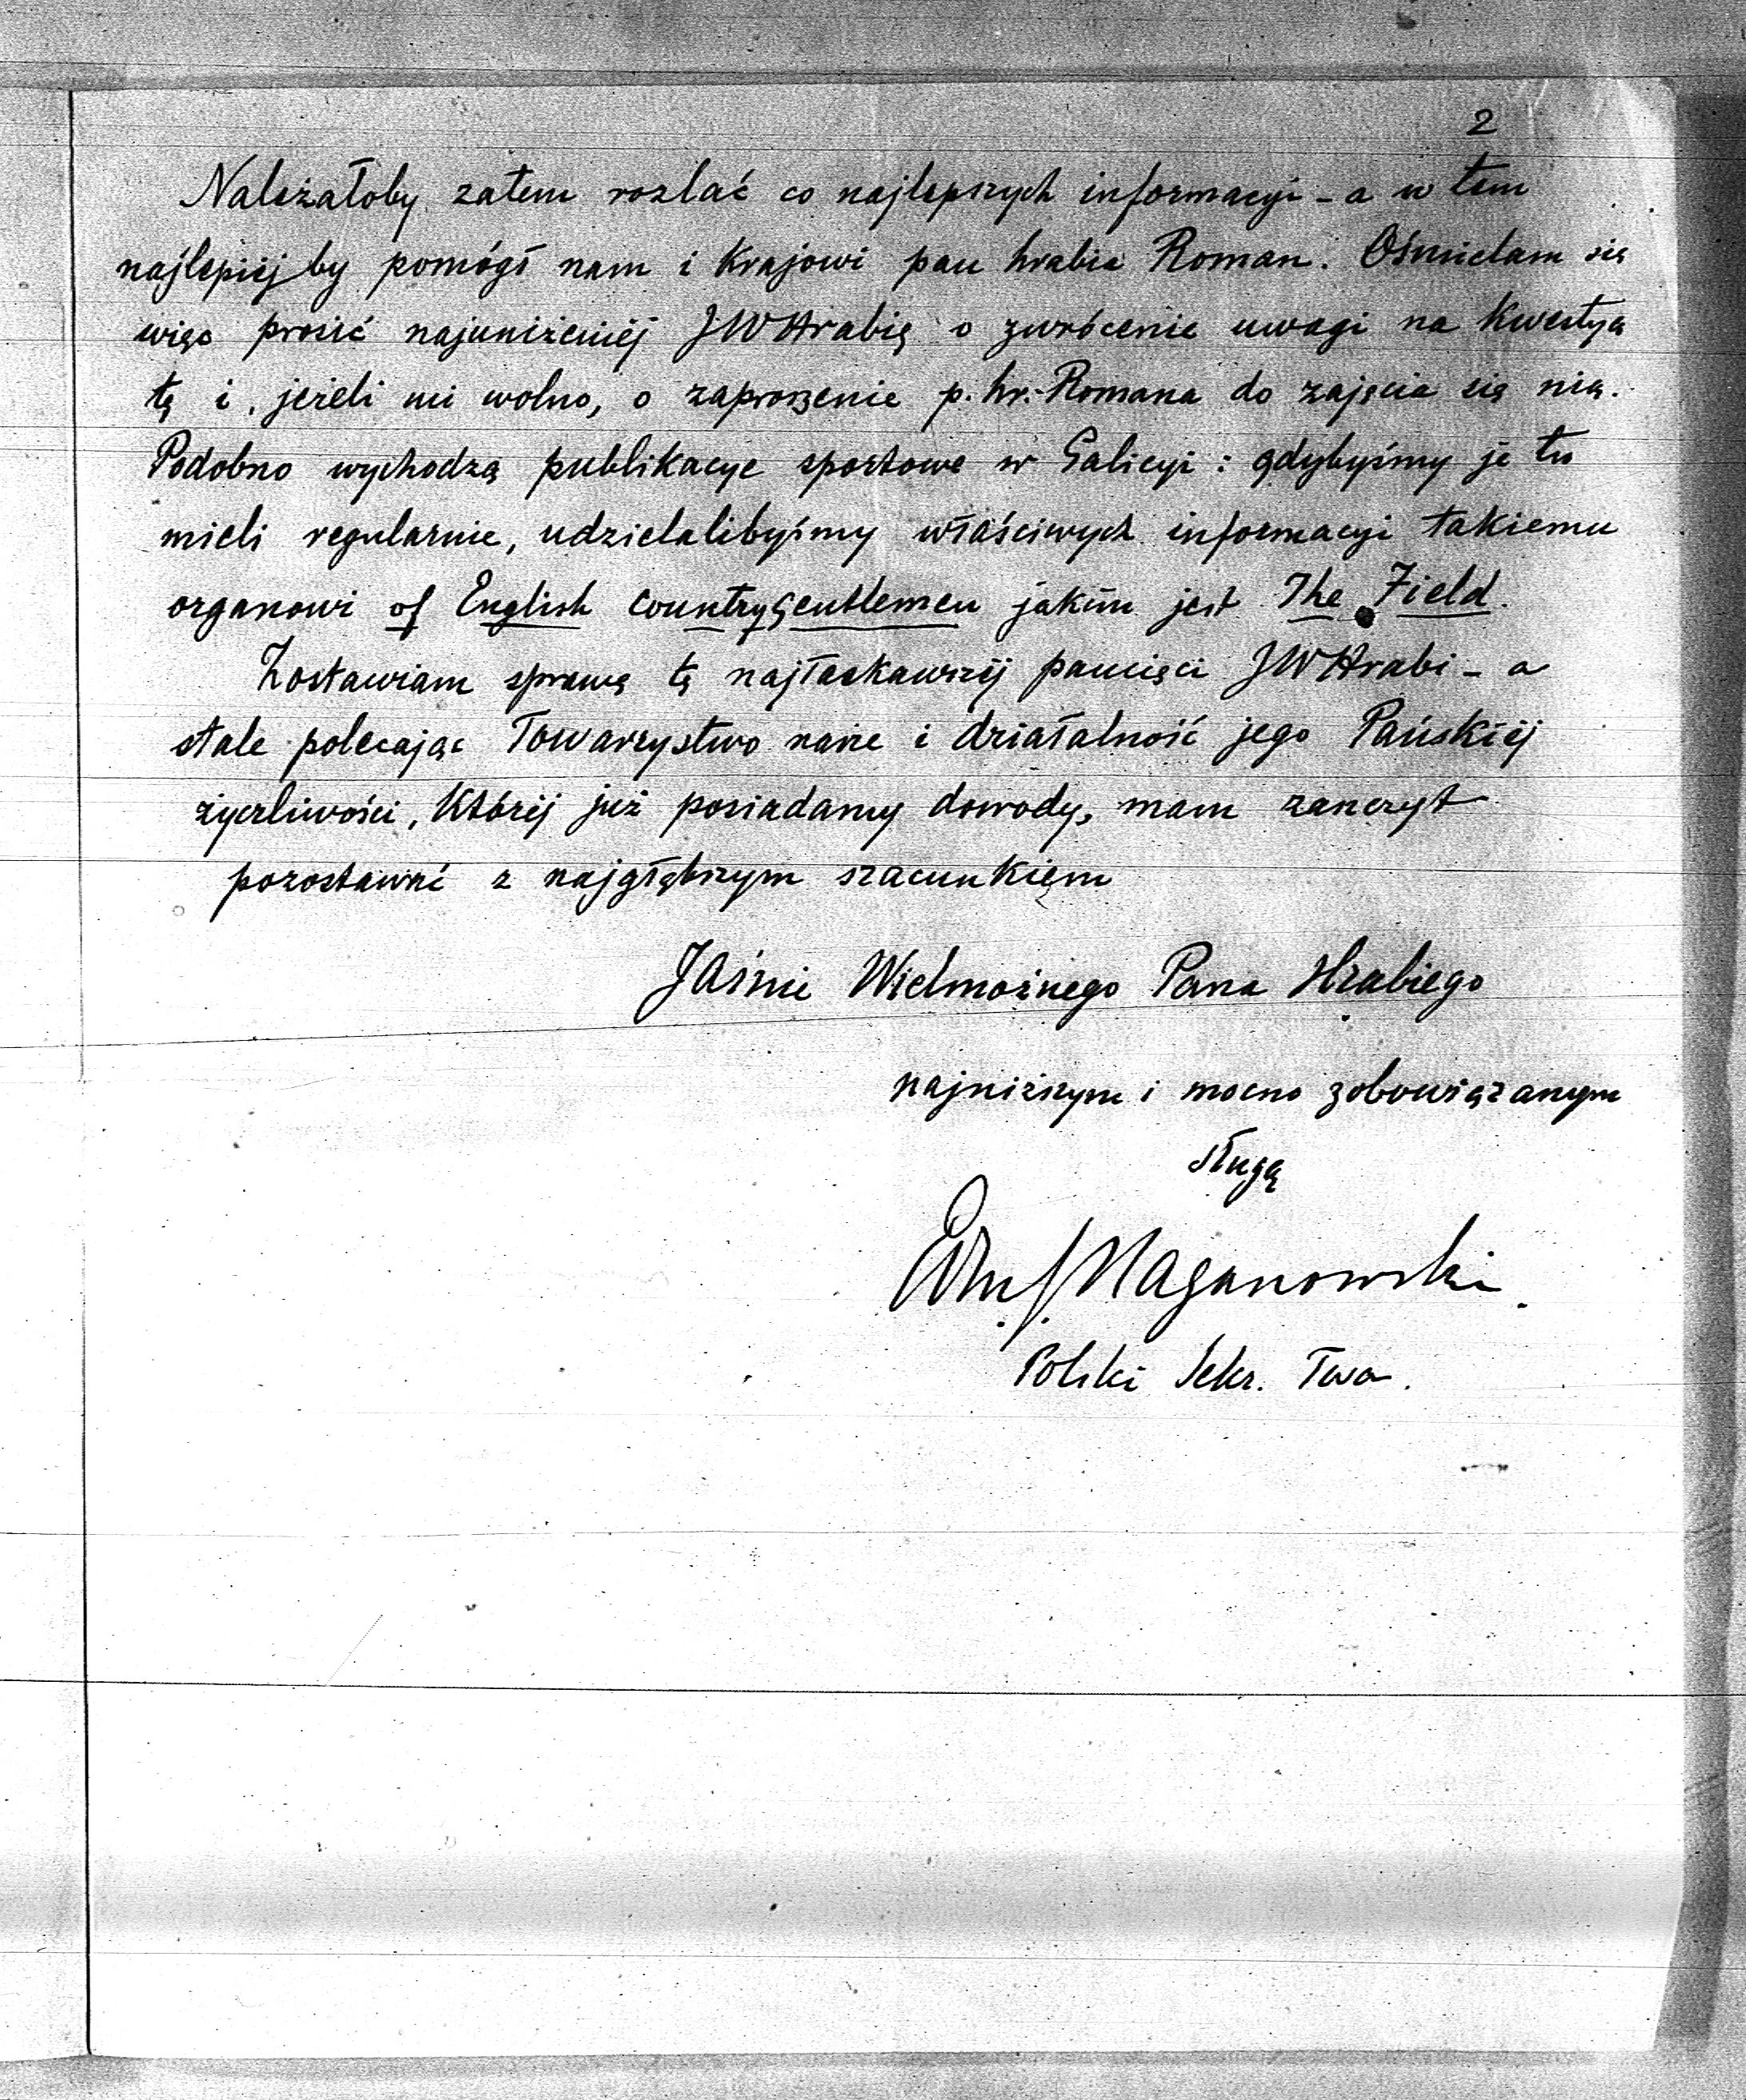 2
Należałoby zatem rozlać co najlepszych informacyi - a w tem
najlepiéj by pomógł nam i Krajowi pan hrabia Roman. Ośmielam się
więc prosić najuniżeniéj JWHrabię o zwrócenie uwagi na Kwestyą
tę i, jeżeli mi wolno, o zaproszenie p. hr. Romana do zajęcia się nią.
Podobno wychodzą publikacye sportowe w Galicyi : gdybyśmy je tu
mieli regularnie, udzielalibyśmy właściwych informacyi takiemu
organowi of English country gentlemen jakim jest The Field.
Zostawiam sprawę tę najłaskawszéj pamięci JWHrabi - a
stale polecając Towarzystwo nasze i działalność jego Pańskiéj
życzliwości, Któréj już posiadamy dowody, mam zaszczyt
pozostawać z najgłębszym szacunkiem
JAśnie Wielmożnego Pana Hrabiego
najniższym i mocno zobowiązanym
sługą
Edm. S. Naganowski.
Polski Sekr. Twa.